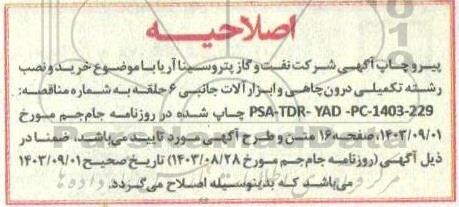 اصلاحیه
پیرو چاپ آگهی شرکت نفت و گاز پتروسینا آریا با موضوع خرید و نصب
رشته تکمیلی درون‌چاهی و ابزار آلات جانبی ۶ حلقه به شماره مناقصه:
PSA-TDR- YAD -PC-1403-229 چاپ شده در روزنامه جام‌جم مورخ
۱۴۰۳/۰۹/۰۱، صفحه ۱۶ متن و طرح آگهی مورد تایید می‌باشد، ضمنا در
ذیل آگهی (روزنامه جام‌جم مورخ ۱۴۰۳/۰۸/۲۸) تاریخ صحیح ۱۴۰۳/۰۹/۰۱
می‌باشد که بدینوسیله اصلاح می‌گردد.